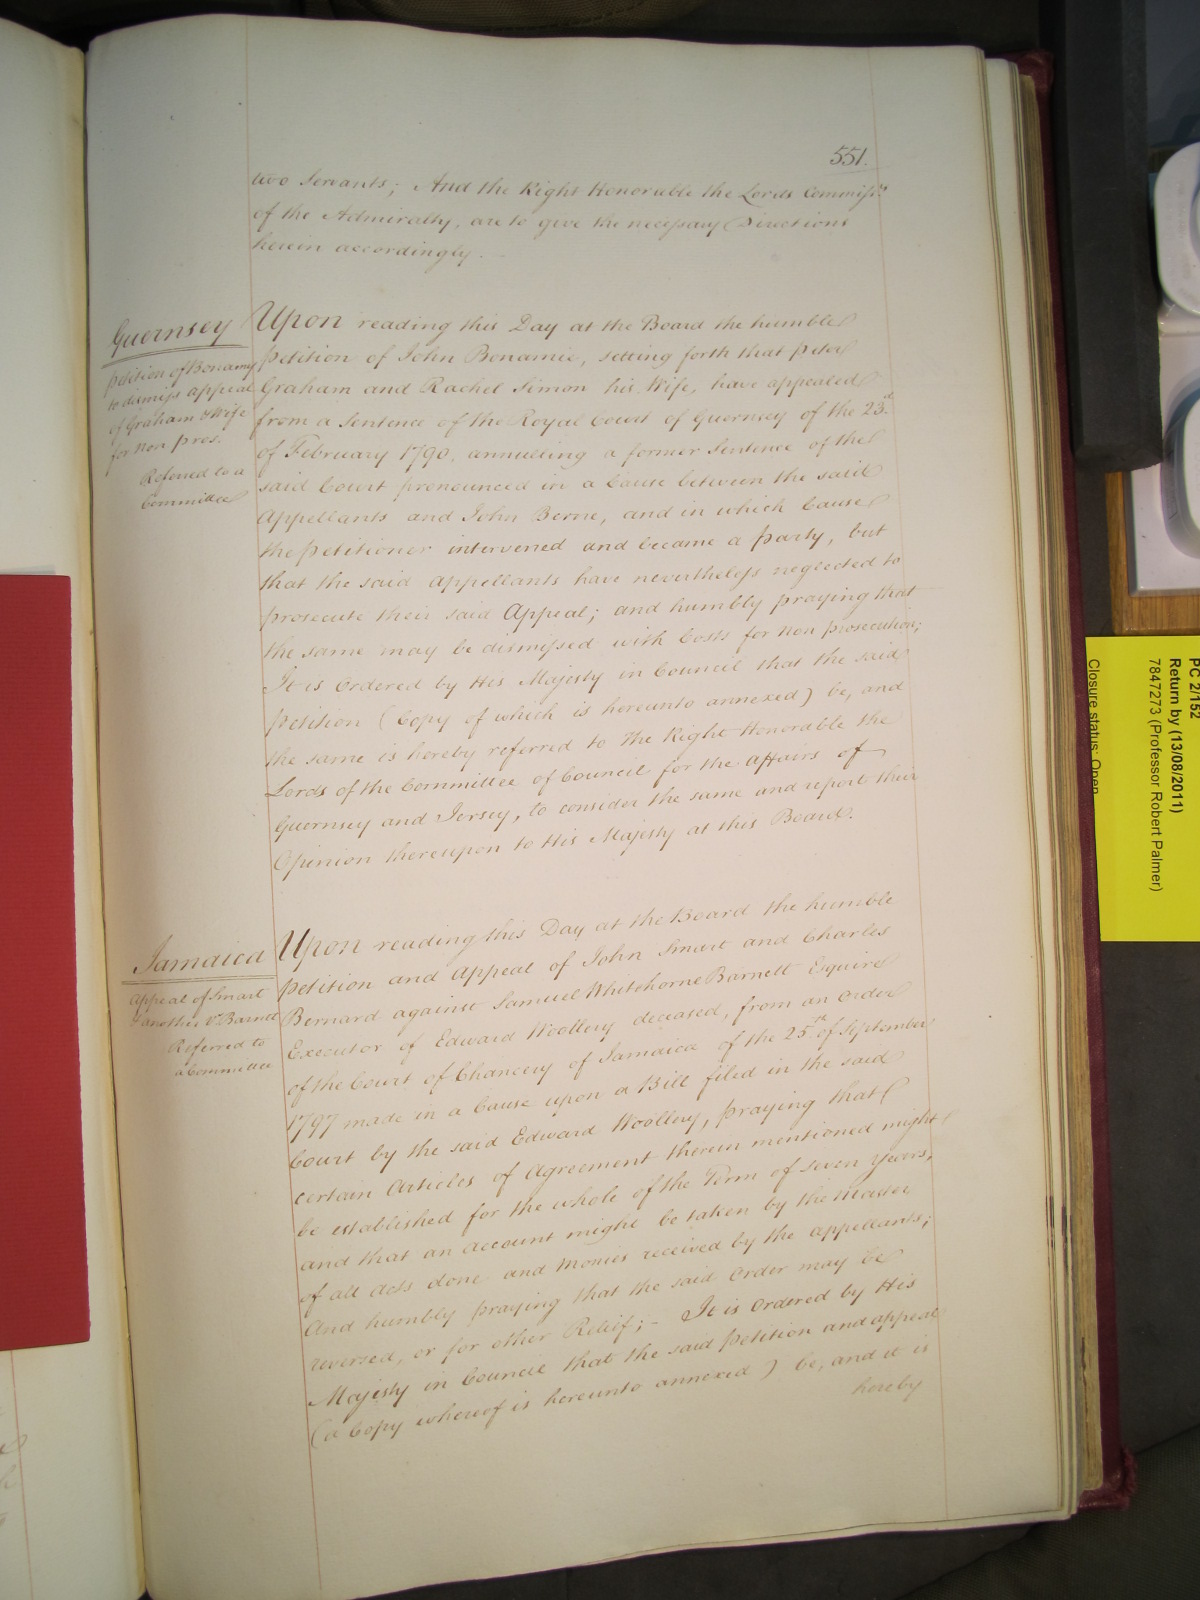 551.
two Servants; And the Right Honorable the Lords Commissrs
of the Admiralty, are to give the necessary Directions
herein accordingly.
Guernsey
Petition of Bonamy
to dismiss appeal
of Graham & Wife
for non pros.
Referred to a
Committee
Upon reading this Day at the Board the humble
Petition of John Bonamie, setting forth that Peter
Graham and Rachel Simon his Wife, have appealed
from a Sentence of the Royal Court of Guernsey of the 23d
of February 1790. annulling a former Sentence of the
said Court pronounced in a Cause between the said
Appellants and John Berne, and in which Cause
the Petitioner intervened and became a Party, but
that the said Appellants have nevertheless neglected to
prosecute their said Appeal; and humbly praying that
the same may be dismissed with Costs for non prosecution;
It is Ordered by His Majesty in Council that the said
Petition (Copy of which is hereunto annexed) be, and
the same is hereby referred to the Right Honorable the
Lords of the Committee of Council for the Affairs of
Guernsey and Jersey, to consider the same and report their
Opinion thereupon to His Majesty at this Board.
Jamaica
Appeal of Smart
& another v. Barnett
Referred to
a Committee
Upon reading this Day at the Board the humble
Petition and Appeal of John Smart and Charles
Bernard against Samuel Whitehorne Barnett Esquire
Executor of Edward Woollery deceased, from an Order
of the Court of Chancery of Jamaica of the 25th of September
1797 made in a Cause upon a Bill filed in the said
Court by the said Edward Woollery, praying that
certain Articles of Agreement therein mentioned might
be established for the whole of the Term of seven Years,
and that an Account might be taken by the Master
of all Acts done and Monies received by the Appellants;
And humbly praying that the said Order may be
reversed, or for other Relief; - It is Ordered by His
Majesty in Council that the said Petition and Appeal
(a Copy whereof is hereunto annexed) be, and it is
hereby
PC 2/152
Return by (13/08/2011)
7847273 (Professor Robert Palmer)
Closure status: Open